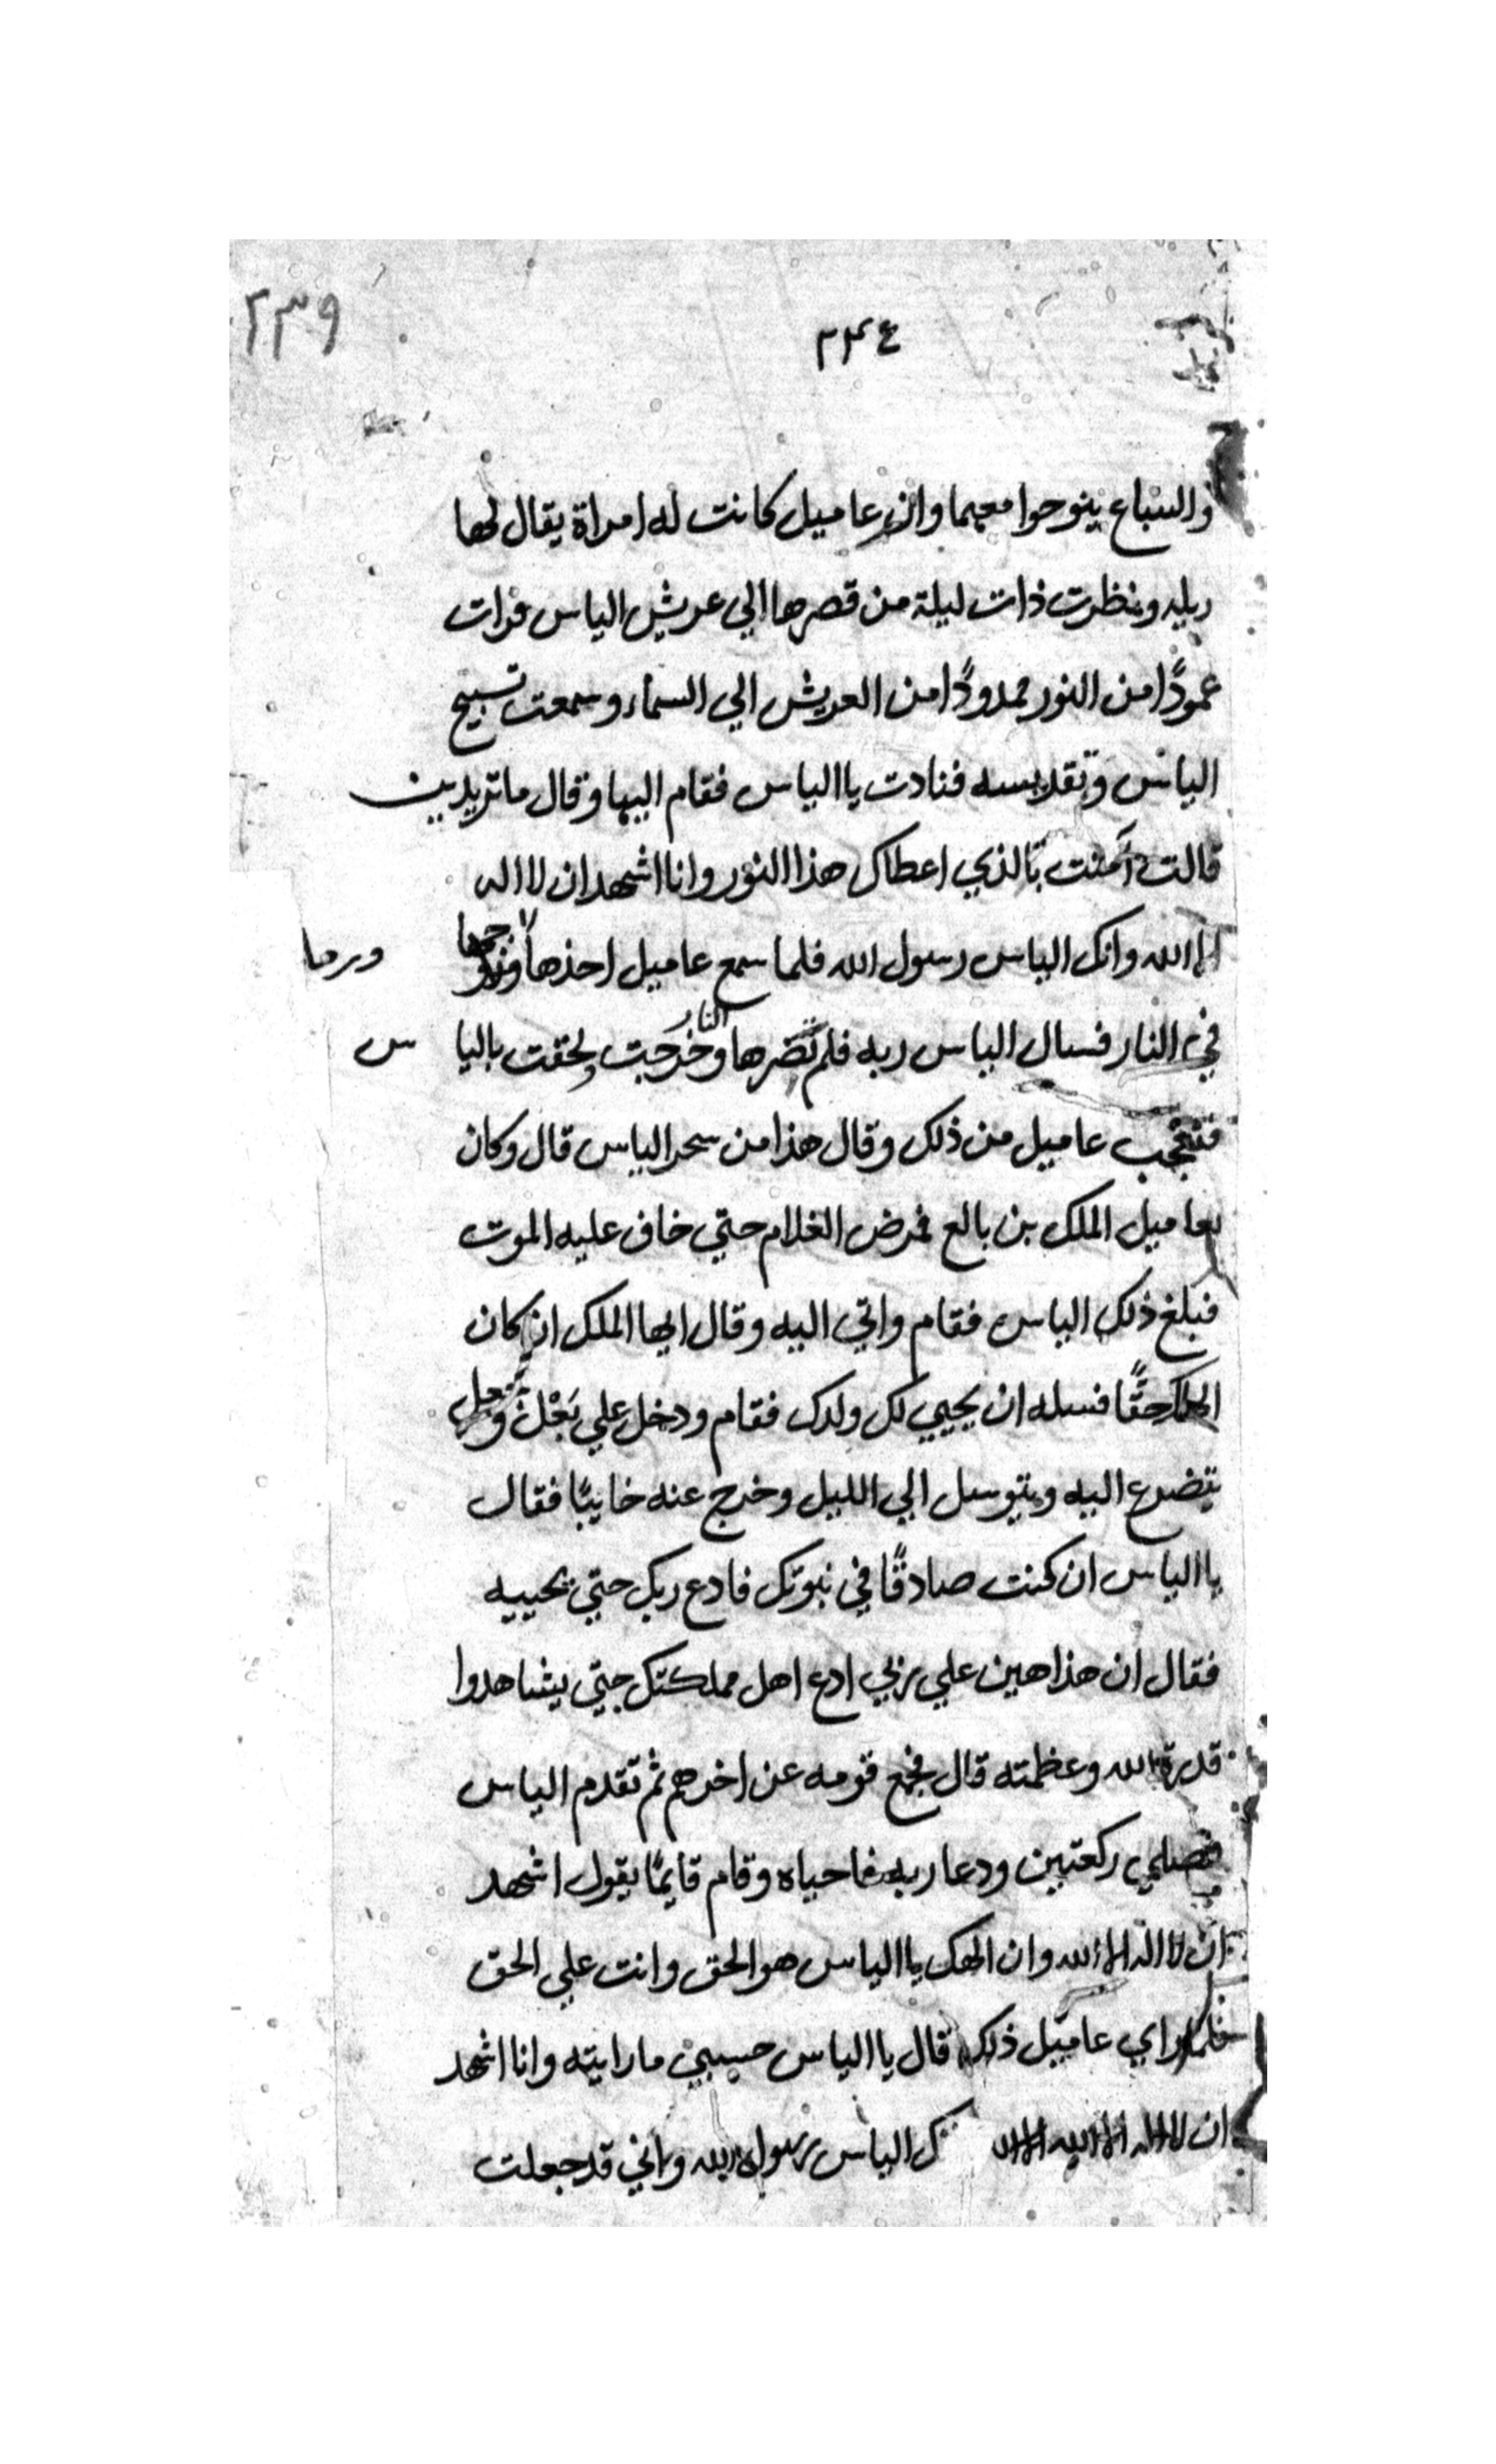 ٢٣٩
٢٣٤
والسباع ينوحوا معهما وان عاميل كانت له امراة يقال لها
ربله ونظرت ذات ليلة من قصرها الي عريش الياس فرات
عمودًا من النور ممدودًا من العريش الي السماء وسمعت تسبيح
الياس وتقديسه فنادت يا الياس فقام اليها وقال ما تريدين
قالت آمنت بالذي اعطاك هذا النور وانا اشهد ان لا اله
الا الله وانك الياس رسول الله فلما سمع عاميل اخذها ورماها
في النار فسال الياس ربه فلم تضرها النار وخرجت ولحقت بالياس
فتعجب عاميل من ذلك وقال هذا من سحر الياس قال وكان
لعاميل الملك بن بالع فمرض الغلام حتي خاف عليه الموت
فبلغ ذلك الياس فقام واتي اليه وقال ايها الملك ان كان
الهك حقًا فسله ان يحيي لك ولدك فقام ودخل علي بَعْل وجعل
يتضرع اليه ويتوسل الي الليل وخرج عنه خايبًا فقال
يا الياس ان كنت صادقًا في نبوتك فادع ربك حتي يحييه
فقال ان هذا هين علي ربي ادع اهل مملكتك حتي يشاهدوا
قدرة الله وعظمته قال فجمع قومه عن اخرهم ثم تقدم الياس
فصلي ركعتين ودعا ربه فاحياه وقام قايمًا يقول اشهد
ان لا اله الا الله وان الهك يا الياس هو الحق وانت علي الحق
فلما راي عاميل ذلك قال يا الياس حسبي ما رايته وانا اشهد
ان لا اله الا الله الياس رسول الله واني قد جعلت